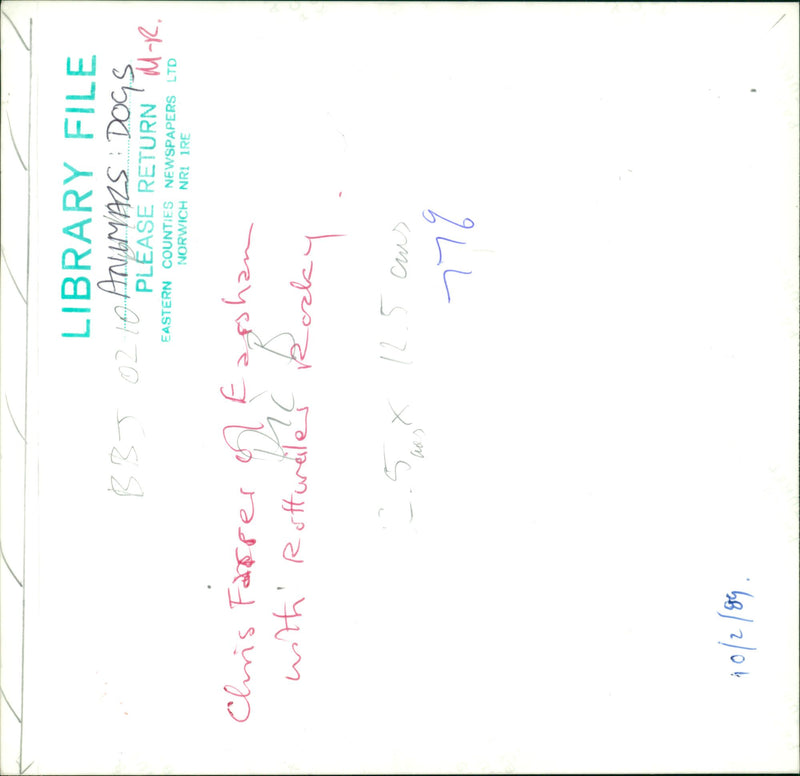 LIBRARY FILE
ANIMALS: DOGS
M-R.
PLEASE RETURN
EASTERN COUNTIES NEWSPAPERS LTD
NORWICH NR1 1RE
BBJ 0210
Chris Farrer of Earsham
with Rottweiler Rocky.
12.5 cms
77%
10/2/89.